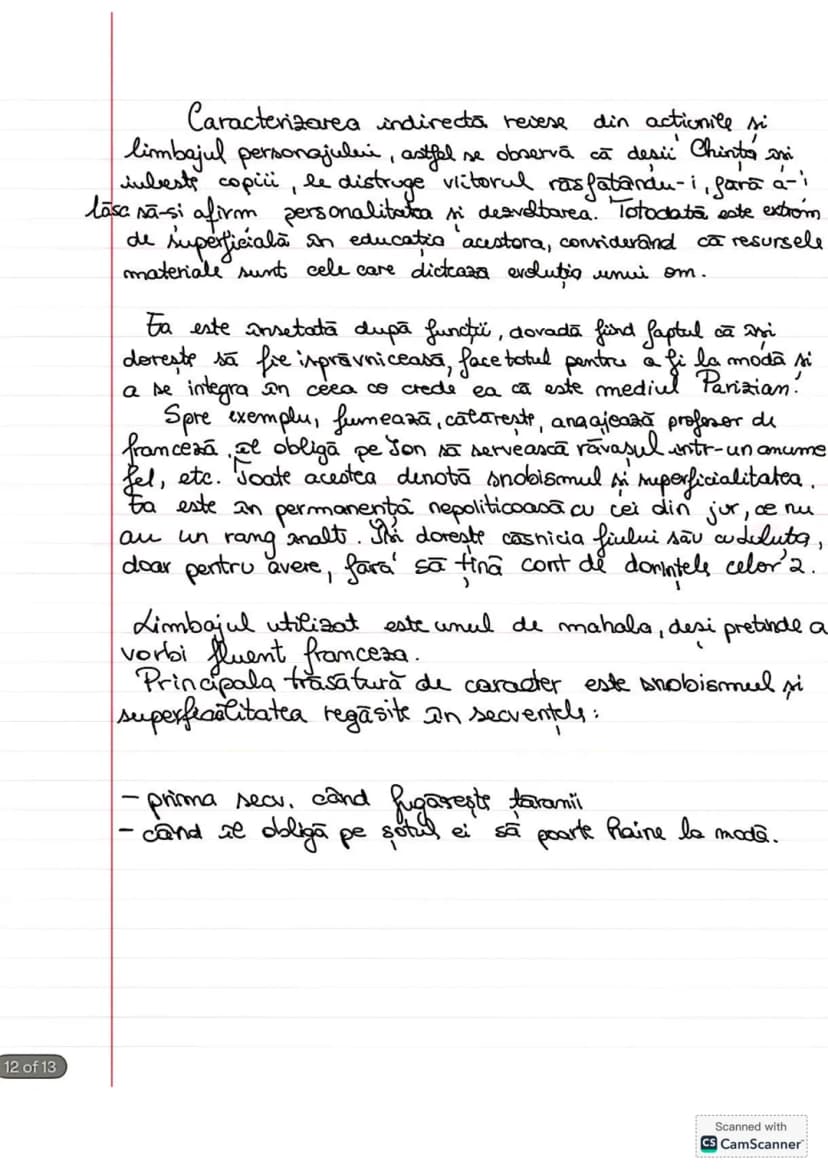 Caracterizarea indirectă reiese din actiunile și
limbajul personajului, astfel se observă că desii Chirița își
iubeste copiii, le distruge viitorul rasfatându-i, fără a-i
lăsa să-si afirm personalitatea si dezvoltarea. Totodată este extrem
de superficială în educatia acestora, considerând că resursele
materiale sunt cele care dicteaza evoluția unui om.
Ea este însetată după funcții, dovadă fiind faptul că își
dorește să fie ispravniceasă, face totul pentru a fi la modă si
a se integra în ceea ce crede ea că este mediul Parizian.
Spre exemplu, fumează, călărește, angajează profesor de
franceză, îl obligă pe Ion să servească răvașul intr-un anume
fel, etc. Toate acestea denotă snobismul si superficialitatea.
Ea este în permanență nepoliticoasă cu cei din jur, ce nu
au un rang înalt. Își dorește căsnicia fiului său cu Luluța,
doar pentru avere, fără să țină cont de dorințele celor 2.
Limbajul utilizat este unul de mahala, desi pretinde a
vorbi fluent franceza.
Principala trăsătură de caracter este snobismul și
superficialitatea regăsite în secvențele:
- prima secv. când fugărește țăranii
- când îl obligă pe soțul ei să poarte haine la modă.
12 of 13
Scanned with
CS CamScanner